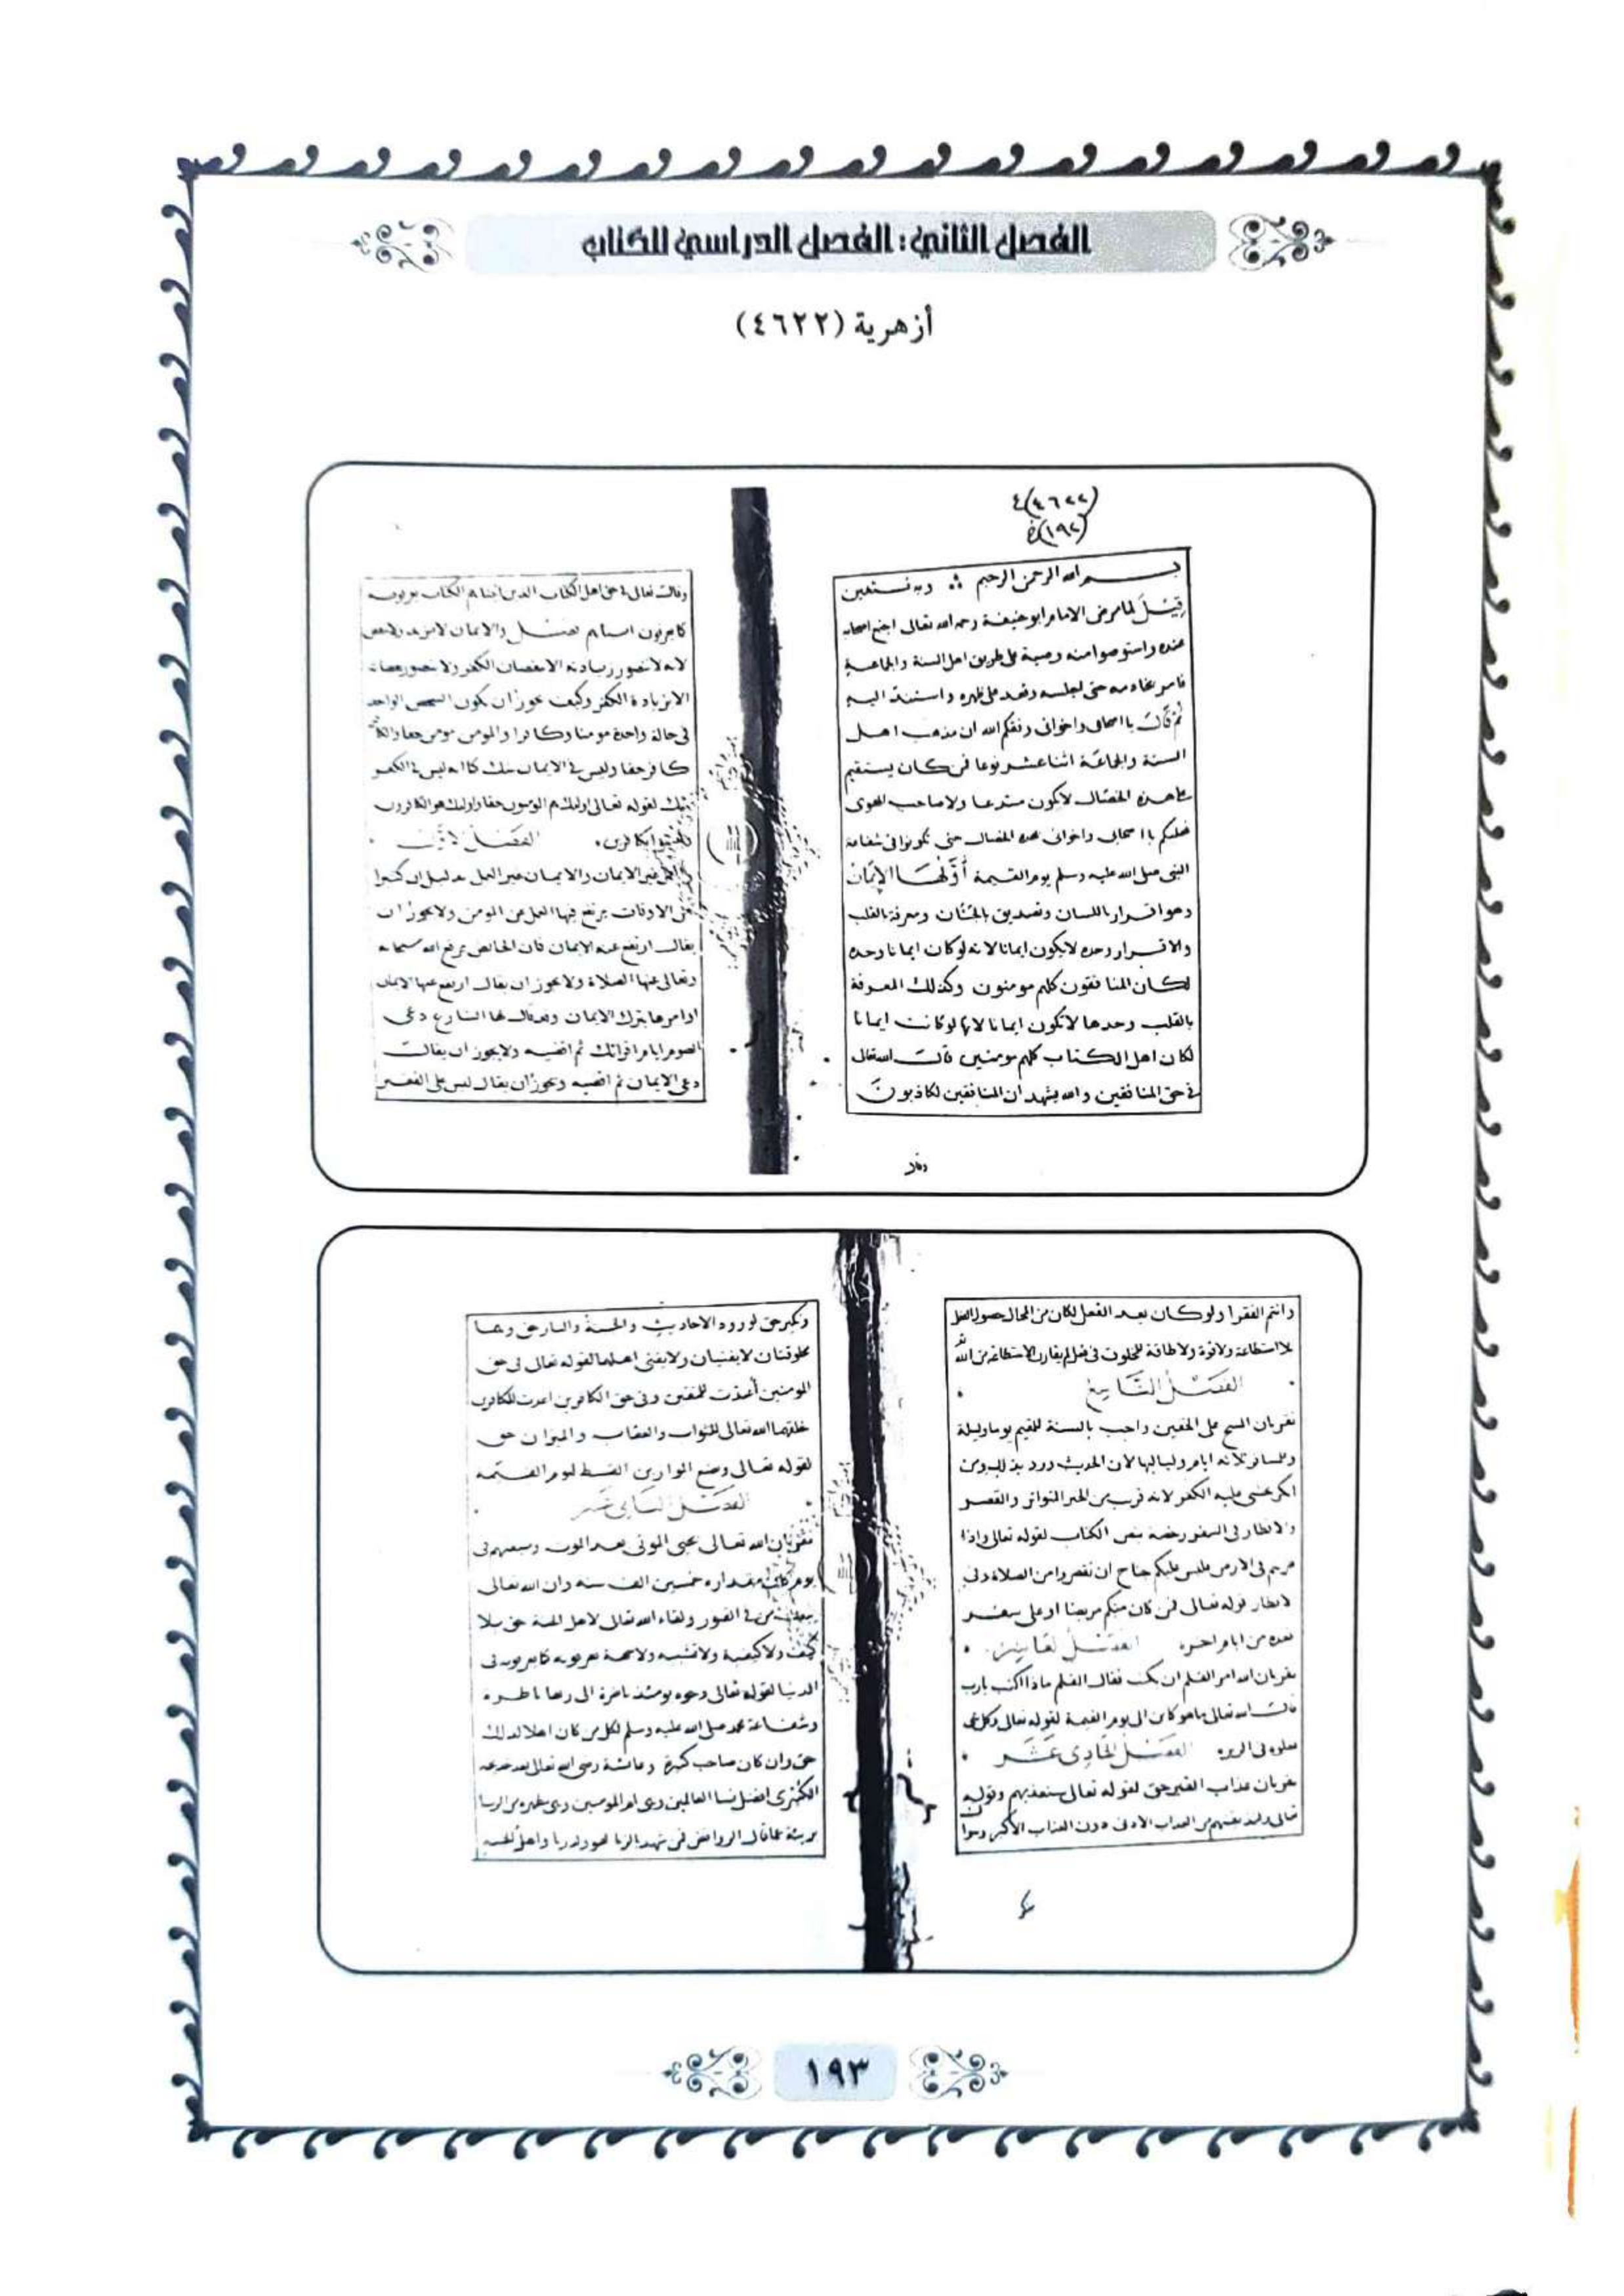 الفصل الثاني: الفصل الدراسي للكتاب
أزهرية (٤٦٢٢)
(٤٦٢٢)
(١٩٢)
بسم الله الرحمن الرحيم وبه نستعين
قيل لما مرض الامام ابو حنيفة رحمه الله تعالى اجتمع اصحابه
عنده واستوصوا منه وصية على طريق اهل السنة والجماعة
فامر خادمه حتى اجلسه وقعد على ظهره واستند اليه
ثم قال يا اصحابى واخوانى وفقكم الله ان مذهب اهل
السنة والجماعة اثنا عشر نوعا فمن كان يستقيم
على هذه الخصال لا يكون مبتدعا ولا صاحب الهوى
فعليكم يا اصحابى واخوانى بهذه الخصال حتى تكونوا فى شفاعة
النبى صلى الله عليه وسلم يوم القيمة أولها الإيمان
وهو اقرار باللسان وتصديق بالجنان ومعرفة بالقلب
والاقرار وحده لا يكون ايمانا لانه لو كان ايمانا وحده
لكان المنافقون كلهم مومنون وكذلك المعرفة
بالقلب وحدها لا تكون ايمانا لانها لو كانت ايمانا
لكان اهل الكتاب كلهم مومنين قال الله تعالى
فى حق المنافقين والله يشهد ان المنافقين لكاذبون
وقال
وقال تعالى فى حق اهل الكتاب الذين اتيناهم الكتاب يعرفونه
كما يعرفون ابناءهم فصل والايمان لا يزيد ولا ينقص
لانه لا تتصور زيادته الا بنقصان الكفر ولا تتصور نقصانه
الا بزيادة الكفر وكيف يجوز ان يكون الشخص الواحد
فى حالة واحدة مومنا وكافرا والمومن مومن حقا والكافر
كافر حقا وليس فى الايمان شك كما انه ليس فى الكفر
شك لقوله تعالى اولئك هم المومنون حقا واولئك هم الكافرون
الفصل الثانى
العمل غير الايمان والايمان غير العمل بدليل ان كثيرا
من الاوقات يرتفع فيها العمل عن المومن ولا يجوز ان
يقال ارتفع عنه الايمان فان الحائض يرفع الله سبحانه
وتعالى عنها الصلاة ولا يجوز ان يقال ارتفع عنها الايمان
او امرها بترك الايمان وقد قال لها الشارع دعى
الصوم ايام اقرائك ثم اقضيه ولا يجوز ان يقال
دعى الايمان ثم اقضيه ويجوز ان يقال ليس على الفقير
وانتم الفقرا ولو كان بعد الفعل لكان من المحال حصول الفعل
بلا استطاعة ولا قوة ولا طاقة للمخلوق فى فعل لم يقارن الاستطاعة من الله
الفصل التاسع
نقر بان المسح على الخفين واجب بالسنة للمقيم يوما وليلة
وللمسافر ثلاثة ايام ولياليها لان الحديث ورد
انكر يخشى عليه الكفر لانه قريب من الخبر المتواتر والقصر
والافطار فى السفر رخصة بنص الكتاب لقوله تعالى واذا
ضربتم فى الارض فليس عليكم جناح ان تقصروا من الصلاة وفى
الافطار قوله تعالى فمن كان منكم مريضا او على سفر
فعدة من ايام اخر الفصل العاشر
نقر بان الله امر القلم ان يكتب فقال القلم ماذا اكتب يارب
قال الله تعالى ما هو كائن الى يوم القيمة لقوله تعالى وكل شى
فعلوه فى الزبر الفصل الحادى عشر
نقر بان عذاب القبر حق لقوله تعالى سنعذبهم وقوله
تعالى ولنذيقنهم من العذاب الادنى دون العذاب الاكبر
ونكير حق لورود الاحاديث والجنة والنار حق وهما
مخلوقتان لا يفنيان ولا يفنى اهلهما لقوله تعالى فى حق
المومنين أعدت للمتقين وفى حق الكافرين اعدت للكافرين
خلقهما الله تعالى للثواب والعقاب والميزان حق
لقوله تعالى ونضع الموازين القسط ليوم القيمة
الفصل الثانى عشر
نقر بان الله تعالى يحيى الموتى بعد الموت ويبعثهم فى
يوم كان مقداره خمسين الف سنة وان الله تعالى
يبعث من فى القبور ولقاء الله تعالى لاهل الجنة حق بلا
كيف ولا كيفية ولا تشبيه ولا يعرفونه كما يعرفونه فى
الدنيا لقوله تعالى وجوه يومئذ ناضرة الى ربها ناظرة
وشفاعة محمد صلى الله عليه وسلم لكل من كان اهلا لذلك
حق وان كان صاحب كبيرة وعائشة رضى الله تعالى بعد خديجة
الكبرى افضل نسا العالمين وهى ام المومنين وهى
بريئة عما قال الروافض فمن شهد بالزنا فهو ولد زنا واهل الجنة
١٩٣